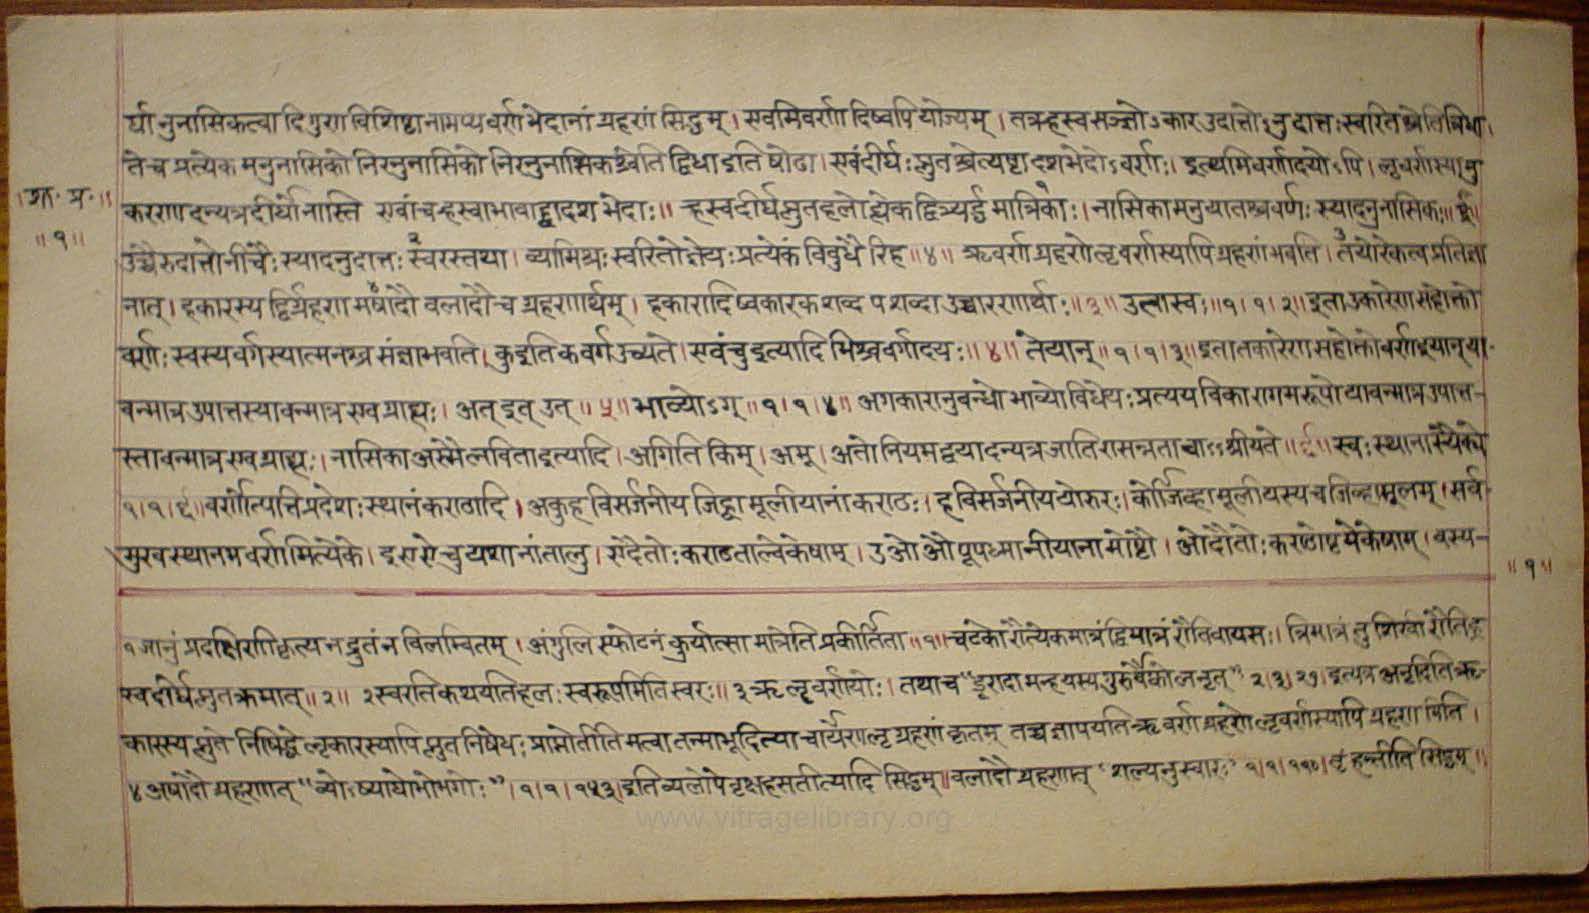 र्घानुनासिकत्वादिगुणविशिष्टानामप्यवर्णभेदानां ग्रहणं सिद्धम् । एवमिवर्णादिष्वपियोज्यम् । तत्रह्रस्वसञ्ज्ञोऽकारउदात्तोऽनुदात्तःस्वरितश्चेतित्रिधा ।
तेच प्रत्येकमनुनासिको निरनुनासिको निरनुनासिकश्चेति द्विधा इति षोढा । एवंदीर्घःप्लुतश्चेत्यष्टादशभेदोऽवर्णः । इत्थमिवर्णादयोऽपि । लृवर्णस्यानु
करणादन्यत्रदीर्घोनास्ति एचांचह्रस्वाभावाद्द्वादशभेदाः ॥ ह्रस्वदीर्घप्लुतहलो ह्येकद्वित्र्यर्द्धमात्रिकाः । नासिकामनुयातश्चवर्णः स्यादनुनासिकः ॥
।शा॰ प्र॰॥
॥१॥
उच्चैरुदात्तोनीचैःस्यादनुदात्तः स्वरस्तथा । व्यामिश्रःस्वरितोज्ञेयःप्रत्येकं विबुधैरिह ॥४॥ ऋवर्णग्रहणेलृवर्णस्यापिग्रहणंभवति । तयोरेकत्वप्रतिज्ञा
नात् । हकारस्य द्विर्ग्रहणमषादौ वलादौच ग्रहणार्थम् । हकारादिष्वकारकशब्द पशब्दाउच्चारणार्थाः ॥३॥ उतास्वः ॥१।१।२॥ इताउकारेणसहोक्तो
वर्णः स्वस्यवर्गस्यात्मनश्च संज्ञाभवति । कुइतिकवर्गउच्यते । एवंचुइत्यादिभिश्चवर्गादयः ॥४॥ तेयान् ॥१।१।३॥ इतातकारेणसहोक्तोवर्णइयान्या-
वन्मात्रउपात्तस्यावन्मात्रएवग्राह्यः । अत् इत् उत् ॥५॥ भाव्योऽग् ॥१।१।४॥ अगकारानुबन्धोभाव्योविधेयःप्रत्ययविकारागमरूपोयावन्मात्रउपात्त-
स्तावन्मात्रएवग्राह्यः । नासिकाअस्मैलविताइत्यादि । अगितिकिम् । अमू । अतोनियमद्वयादन्यत्रजातिरासन्नताचाऽऽश्रीयते ॥६॥ स्वःस्थानास्यैक्ये
१।१।६॥ वर्णोत्पत्तिप्रदेशःस्थानंकण्ठादि । अकुहविसर्जनीय जिह्वामूलीयानांकण्ठः । हविसर्जनीययोरुरः । कोर्जिव्हामूलीयस्यचजिव्हामूलम् । सर्व-
मुखस्थानमवर्णमित्येके । इएऐचुयशानांतालु । एदैतोःकण्ठताल्वेकेषाम् । उओऔपूपध्मानीयानामोष्ठौ । ओदौतोःकण्ठोष्ठमेकेषाम् । वस्य-
॥१॥
१जानुंप्रदक्षिणीकृत्य नद्रुतंनविलम्बितम् । अंगुलिस्फोटनंकुर्यात्सामात्रेतिप्रकीर्तिता ॥१॥ चटकोरौत्येकमात्रंद्विमात्रंरौतिवायसः । त्रिमात्रंतुशिखीरौतिह्र
स्वदीर्घप्लुतक्रमात् ॥२॥ २स्वरतिकथयतिहलःस्वरूपमितिस्वरः ॥ ३ऋलृवर्णयोः । तथाच “दूरादामन्त्र्यस्यगुरुर्वैकोलनृत्” २।३।२७।इत्यत्रअनृदितिऋ-
कारस्यप्लुते निषिद्धेलृकारस्यापिप्लुतनिषेधःप्राप्नोतीतिमत्वातन्माभूदित्याचार्येणलृग्रहणंकृतम् तच्चज्ञापयतिऋवर्णग्रहणेलृवर्णस्यापिग्रहणमिति ।
४अषादौग्रहणात् “व्योऽष्याघोभोभगोः” ।१।१।१५३।इतिव्यलोपेवृक्षहसतीत्यादिसिद्धम् ॥ वलादौग्रहणात् ‘शल्यनुस्वारः’ १।१।११०।वृंहन्तीतिसिद्धम् ॥
www.vitragelibrary.org